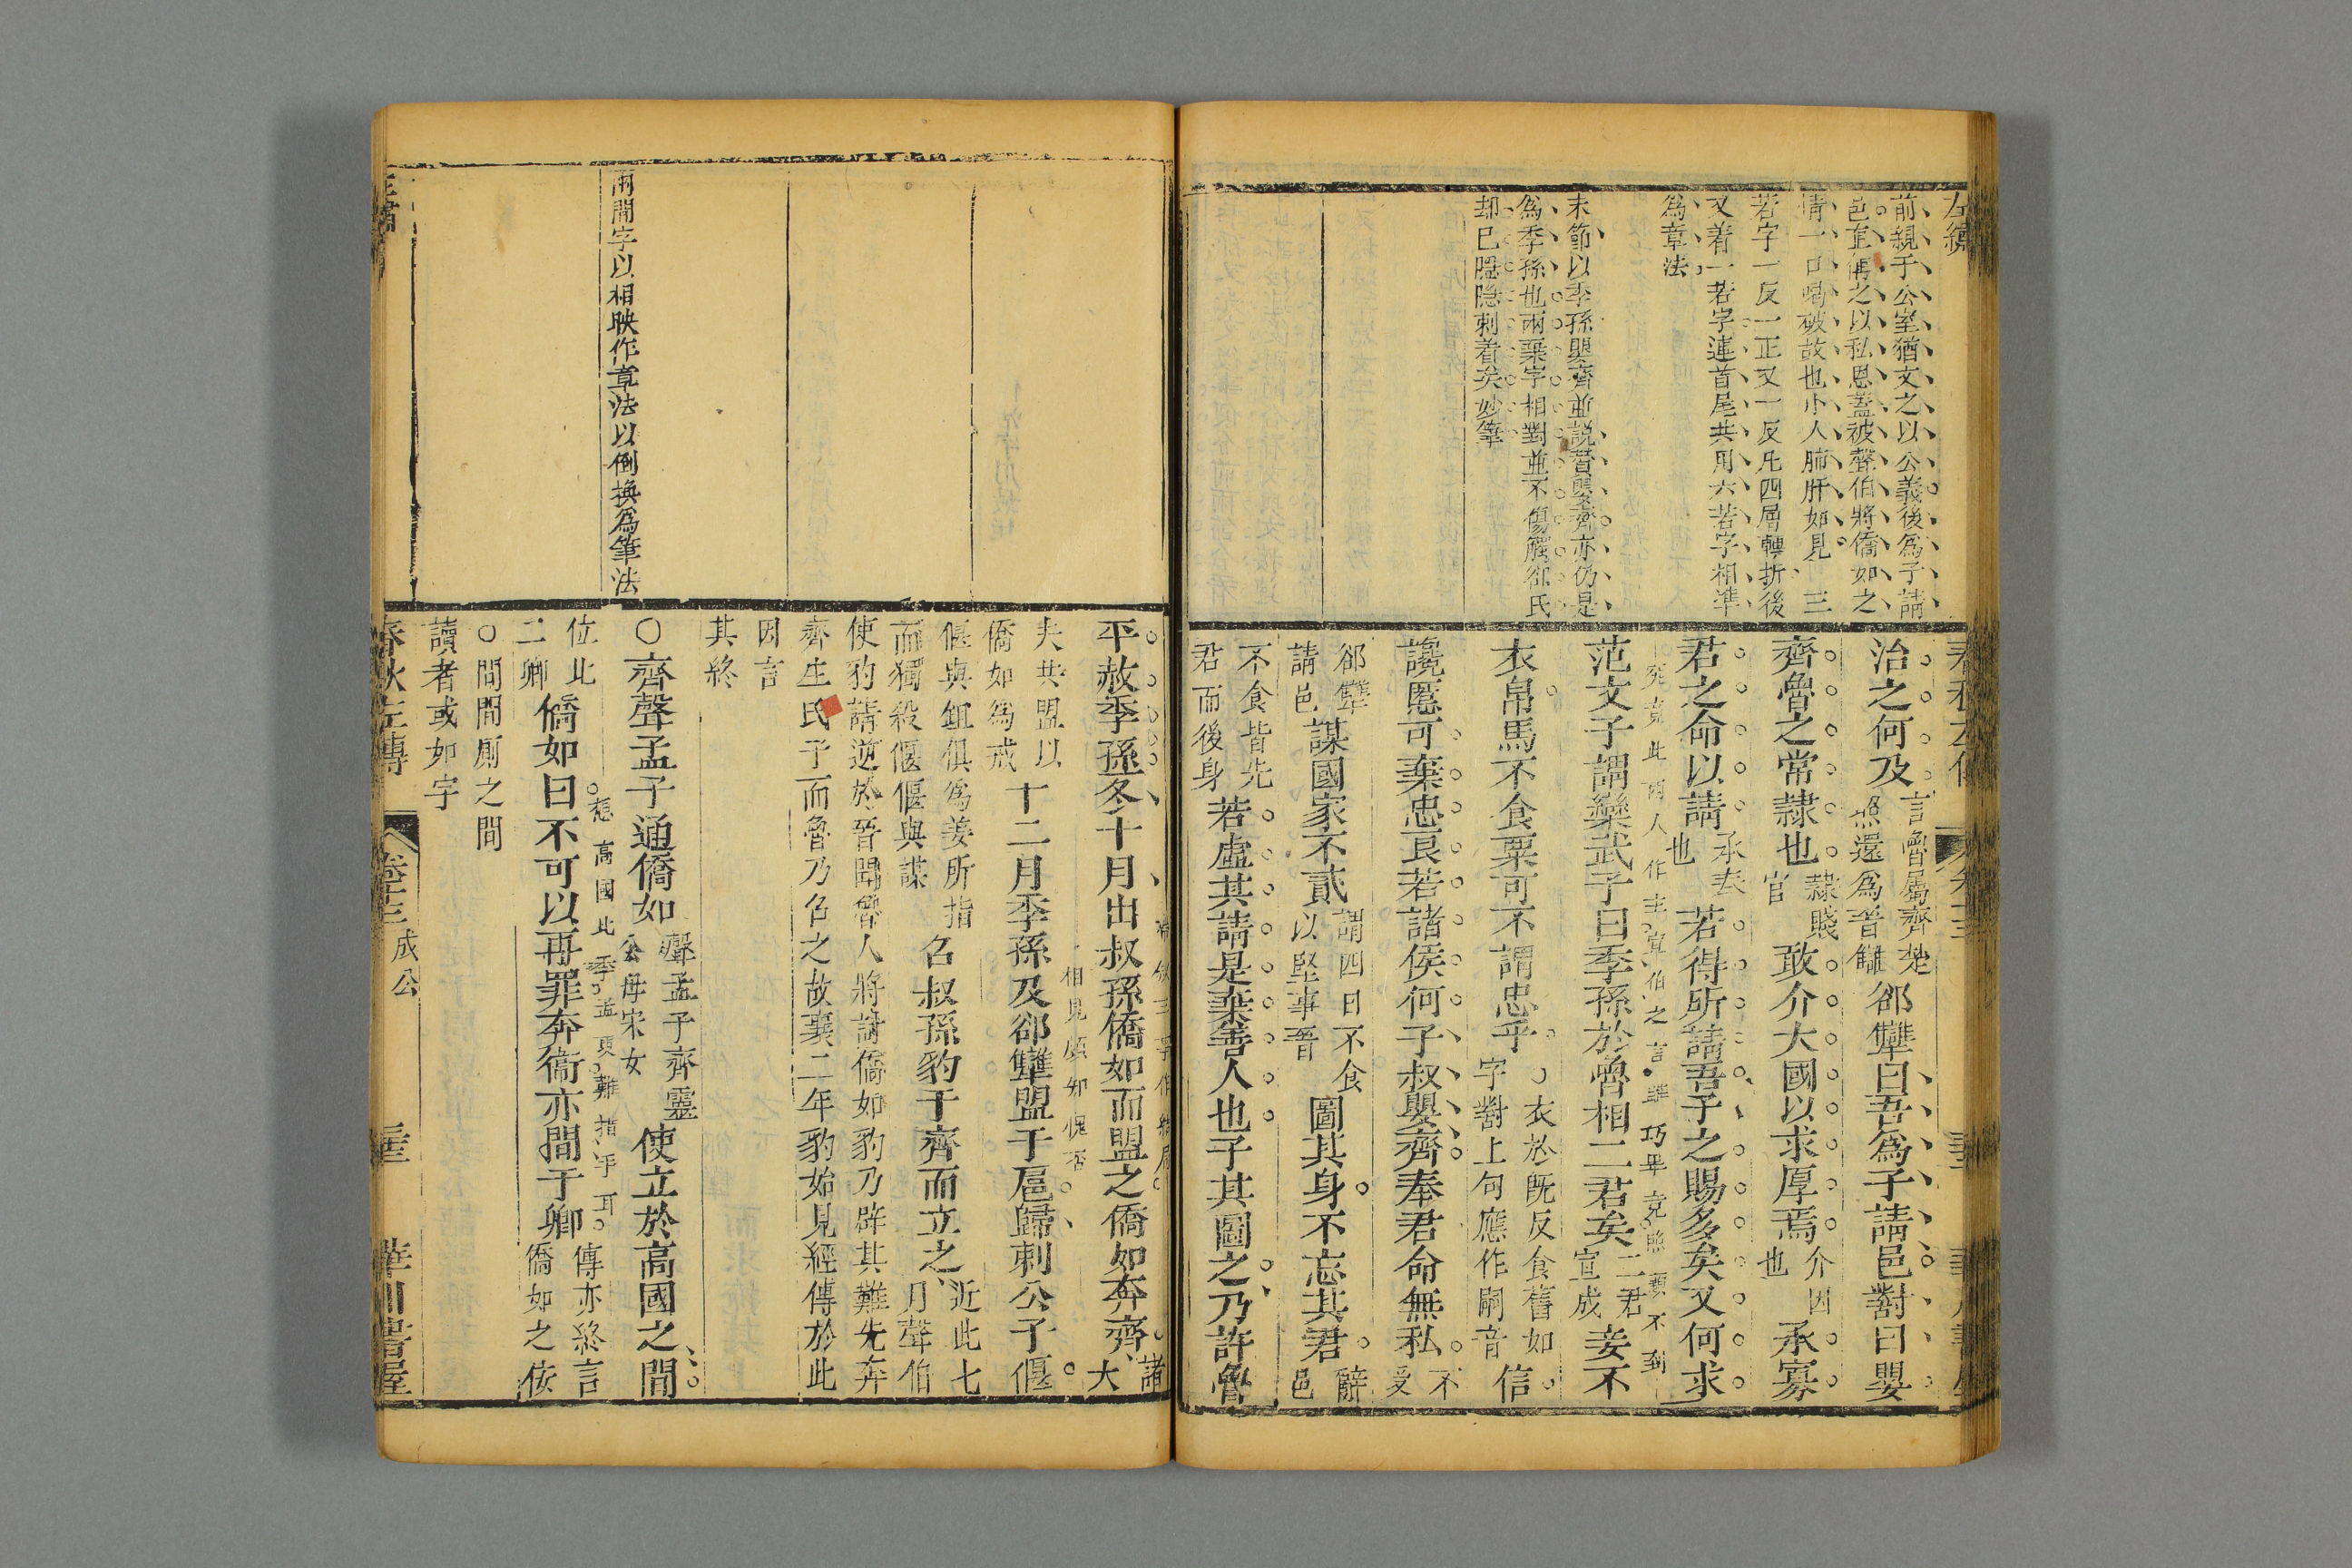 左繡
前親于公室猶文之以公義後爲子請
邑直侑之以私恩蓋被聲伯將僑如之
情一口喝破故也小人肺肝如見 三
若字一反一正又一反凡四層轉折後
又着一若字連首尾共用六若字相準
爲章法
末節以季孫嬰齊並説昔嬰齊亦仍是
爲季孫也兩棄字相對並不傷觸郤氏
却已隱隱刺着矣妙筆
治之何及言魯屬齊楚還爲晉讎郤犨曰吾爲子請邑對曰嬰
齊魯之常隸也隸賤官敢介大國以求厚焉介因也承寡
君之命以請承奉也若得所請吾子之賜多矣又何求
范文子謂欒武子曰季孫於魯相二君矣二君宣成妾不
衣帛馬不食粟可不謂忠乎○衣於既反食舊如字對上句應作嗣音信
讒慝可棄忠良若諸侯何子叔嬰齊奉君命無私不受
郤犨請邑謀國家不貳謂四日不食以堅事晉圖其身不忘其君辭邑
不食皆先君而後身若虛其請是棄善人也子其圖之乃許魯
兩間字以相映作章法以倒換爲筆法
平赦季孫冬十月出叔孫僑如而盟之僑如奔齊諸大
夫共盟以僑如爲戒十二月季孫及郤犨盟于扈歸刺公子偃
偃與鉏俱爲姜所指而獨殺偃偃與謀召叔孫豹于齊而立之近此七月聲伯
使豹請逆於晉聞魯人將討僑如豹乃辟其難先奔
齊生氏子而魯乃召之故襄二年豹始見經傳於此
因言
其終
○齊聲孟子通僑如聲孟子齊靈公母宋女使立於高國之間
位此二卿僑如曰不可以再罪奔衞亦間于卿傳亦終言僑如之佞
○間間厠之間
讀者或如字
春秋左傳
卷十三 成公
華川書屋